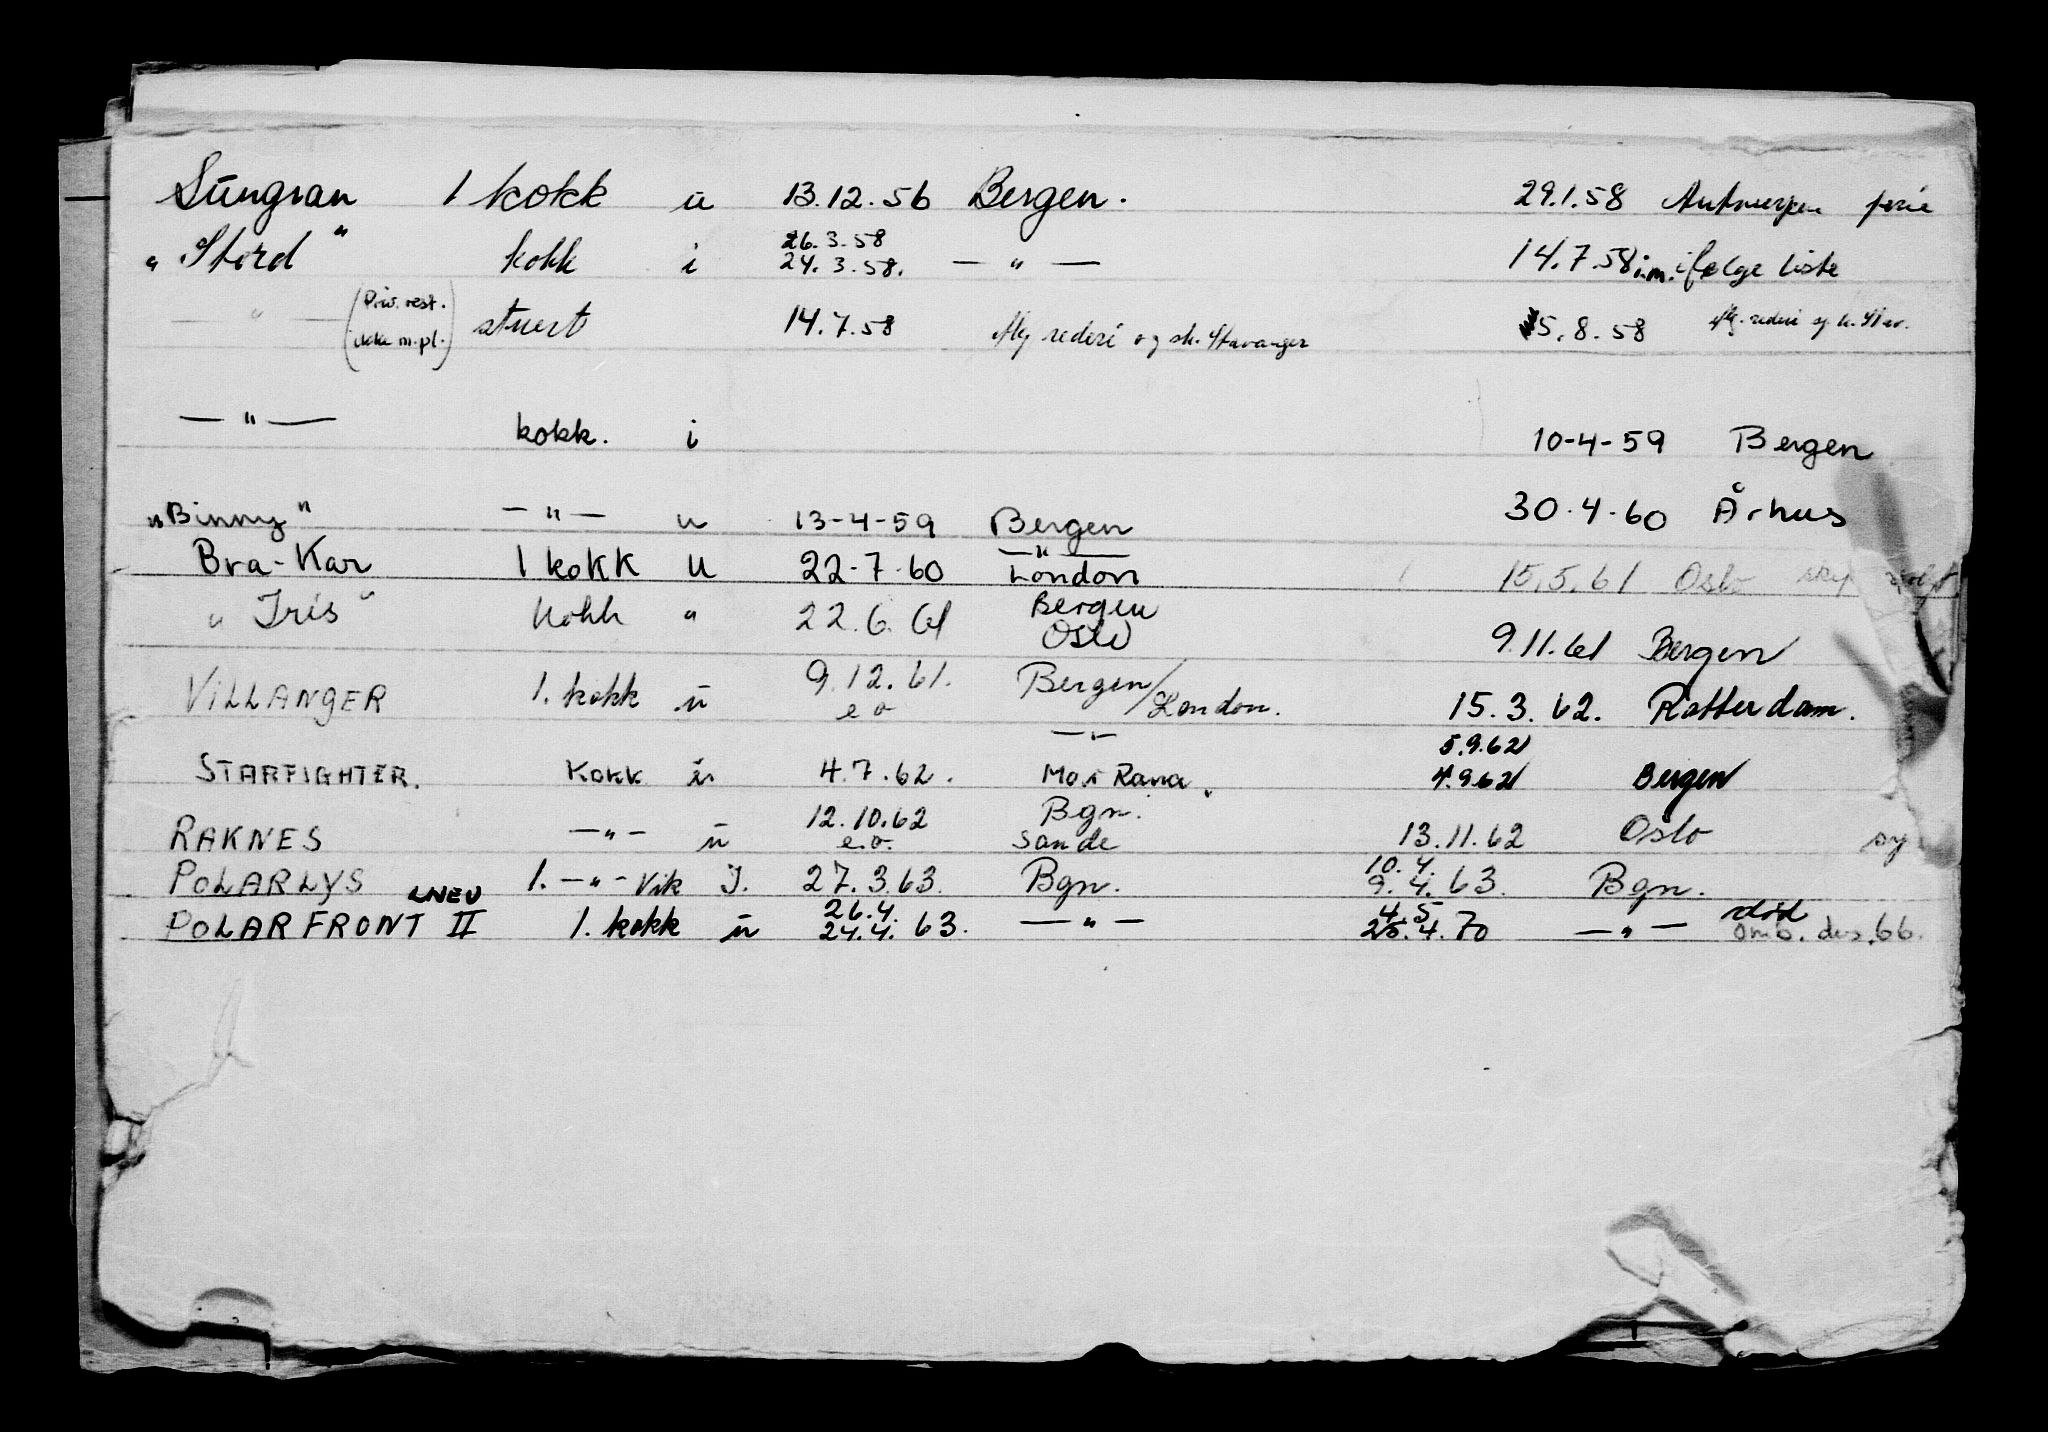 Sungran 1 kokk u 13.12.56 Bergen. 29.1.58 Antwerpen ferie
26.3.58
"Stord" kokk i 24.3.58. — " — 14.7.58 i.m. ifølge liste
— " — (Priv. rest. ikke m.pl.) stuert 14.7.58 Mg rederi og sk. Stavanger 5.8.58 Mg. rederi og k. Stav.
— " — kokk. i 10-4-59 Bergen
"Binny" — " — u 13-4-59 Bergen 30.4.60 Århus
— " —
Bra-Kar 1 kokk u 22-7-60 London 15.5.61 Oslo
Bergen
"Iris" kokk " 22.6.61 Oslo 9.11.61 Bergen
VILLANGER 1. kokk u 9.12.61. Bergen/London. 15.3.62. Rotterdam.
e o
— " — 5.9.62
STARFIGHTER. Kokk u 4.7.62. Mo i Rana. 4.9.62 Bergen
12.10.62 Bgn.
RAKNES — " — u e.o. Sande 13.11.62 Oslo sy
10.4.
POLARLYS 1. — " — Vik I. 27.3.63. Bgn. 9.4.63. Bgn.
LNEV 26.4. 4.5 død
POLARFRONT II 1. kokk u 24.4.63. — " — 25.4.70 — " — omb. des. 66.